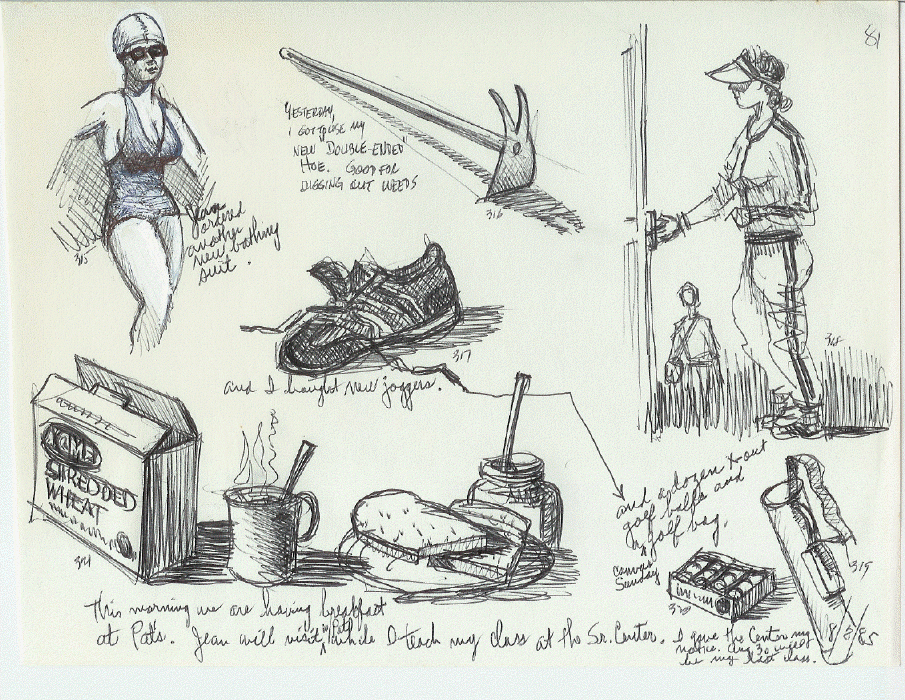 81
YESTERDAY,
I GOT TO USE MY
NEW DOUBLE-ENDED
HOE. GOOD FOR
DIGGING OUT WEEDS
316
Jean
ordered
another
new bathing
suit.
315
317
and I bought new joggers.
318
SHREDDED
WHEAT
321
and a dozen X-out
golf balls and
a golf bag.
canvas
Sunday
319
320
This morning we are having breakfast
at Pat's. Jean will visit Pat while I teach my class at the Sr. Center.
I gave the Center my
notice. Aug 30 might
be my last class.
8/8/85